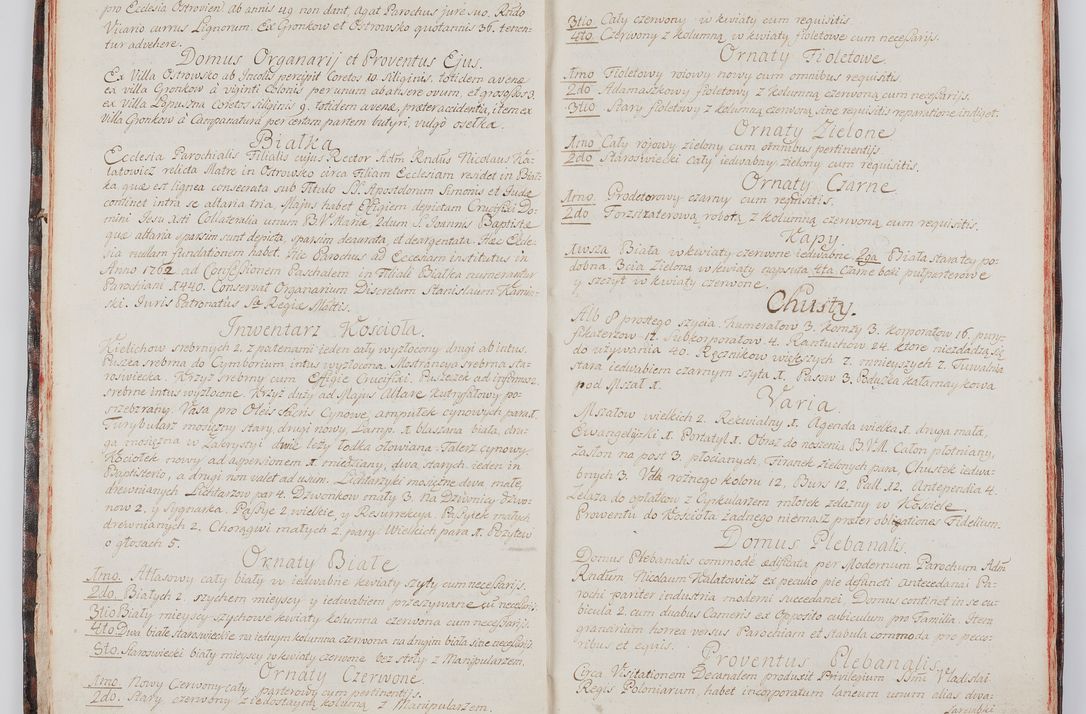 pro Ecclesia Ostrovien ab annis 49 non dant, agat Parochus jure suo. Rndo
Vicario currus Lignorum. Ex Gronkow et Ostrowsko quotannis 36. tenen-
tur advehere.
Domus Organarij et Proventus Ejus.
Ex Villa Ostrowsko ab Incolis percipit Coretos 10 siliginis. totidem avenæ
ex villa Gronkow à viginti Colonis per unum ab altero ovum, et grosos 3.
ex Villa Lopuszna Coretos siliginis 9. totidem avenæ, præter accidentia, item ex
Villa Gronkow à Campanatura per certam partem butyri, vulgò osełka.
Białka
Ecclesia Parochialis Filialis cujus Rector Adm Rndus Nicolaus Ka-
łatowicz relicta Matre in Ostrowsko circa Filiam Ecclesiam residet in Biał-
ka quæ est lignea consecrata sub Titulo SS. Apostolorum Simonis et Judæ
continet intra se altaria tria, Majus habet Effigiem depictam Crucifixi Do-
mini Jesu asti Collateralia unum B.V. Mariæ 2dum S. Joannis Baptistæ
quæ altaria sparsim sunt depicta, sparsim deaurata, et deargentata. Hæc Eccle-
sia nullam fundationem habet. Hic Parochus ad Ecclesiam institutus in
Anno 1762 ad Confessionem Paschalem in Filiali Białka numerantur
Parochiani 1440. Conservat Organarium Discretum Stanislaum Kamin-
ski. Juris Patronatus Sæ Regiæ Mattis.
Inwentarz Kosciola.
Kielichow srebrnych 2. z patenami ieden cały wyzłocony drugi ab intus.
Puszka srebrna do Cymborium intus wyzłocona. Monstrancya srebrna sta-
roswiecka. Krzyż srebrny cum Effigie Crucifixi. Puszeczek ad infirmos 2.
srebrne intus wyzłocone. Krzyż duży ad Majus Altare kutryfałowy po-
srzebrzany. Vasa pro Oleis Sacris Cynowe, ampułek cynowych para 1.
Turybularz mosiężny stary, drugi nowy, Lamp. 1 blaszana biała, dru-
ga mosiężna w Zakrystyi dwie leży łodka ołowiana. Talerz cynowy.
Kociołek nowy ad aspersionem 1 miedziany, dwa starych ieden in
Baptisterio, a drugi non valet ad usum. Lichtarzyki mosiężne dwa małe,
drewnianych Lichtarzow par 4. Dzwonkow mały 3. na Dzwonicy Dzwo-
now 2. y Sygnarka. Passye 2 wielkie, y Resurrekcya. Passyiek małych
drewnianych 2. Chorągwi małych 2. pary Wielkich para 1. Pozytew
o głosach 5.
Ornaty Białe
1mo. Atłasowy cały biały w iedwabne kwiaty szyty cum necessarijs.
2do. Białych 2. szychem mieyscy y iedwabiem przeszywane cū necessarijs
3tio Biały mieyscy szychowe kwiaty kolumna czerwona cum necessarijs.
4to. Dwa białe staroswieckie na iednym kolumna czerwona na drugim biała sine necessarijs.
5to. Staroswiecki biały mieyscy w kwiaty czerwone bez stuły z Manipularzem.
Ornaty Czerwone
1mo. Nowy Czerwony cały parterowy cum pertinentijs.
2do. Stary czerwony z iedostayną kolumną z Manipularzem.
3tio Cały czerwony w kwiaty cum requisitis
4to. Czerwony z kolumną w kwiaty fioletowe cum necessarijs.
Ornaty Fioletowe.
1mo Fioletowy roiowy nowy cum omnibus requisitis.
2do Adamaszkowy fioletowy z kolumną czerwoną cum necessarijs.
3tio Stary fioletowy z kolumną czerwoną sine requisitis reparatione indiget.
Ornaty Zielone
1mo Cały rojowy zielony cum omnibus pertinentijs
2do Staroswiecki cały iedwabny zielony cum requisitis.
Ornaty Czarne
1mo. Prodetorowy czarny cum requisitis.
2do Forzsztaterową robotą z kolumną czerwoną cum requisitis.
Kapy
1wsza Biała w kwiaty czerwone iedwabne 2ga Biała stara tey po-
dobna. 3cia Zielona w kwiaty 4ta Czarne boki
y szczyt w kwiaty czerwone.
Chusty.
Alb 8 prostego szycia. Humerałow 3. Komzy 3. korporałow 16. pury-
fikaterzow 12. Subkorporałow 4. Rantuchow 24. ktore niezdadzą się
do używania 40. Ręcznikow większych 7. mnieyszych 7. Tuwalnia
stara iedwabiem czarnym szyta 1. Pasow 3. Poduszka kałamaykowa
pod Mszał 1.
Varia.
Mszałow wielkich 2. Rekwialny 1. Agenda wielka 1. druga mała,
Ewangelijzki 1. Portatyl 1. Obraz do noszenia B.V.M. Całon płotniany,
Zasłon na post 3. płocianych, Firanek zielonych para Chustek iedwa-
bnych 3. Vela rożnego koloru 12, Burs 12. Pall 12. Antependia 4.
Zelaza do opłatkow z Cyrkularzem młotek żelazny w Kosciele
Prowentu do Kosciola żadnego niemasz præter obligationes Fidelium.
Domus Plebanalis.
Domus Plebanalis commode ædificata per Modernum Parochum Adm
Rndum Nicolaum Kalatowicz ex peculio pie defuncti antecedanei Pa-
rochi pariter industria moderni succedanei. Domus continet in se cu-
bicula 2. cum duabus Cameris ex Opposito cubiculum pro Familia. Item
granarium horrea versus Parochiam et stabula commoda pro peco-
ribus et equis.
Proventus Plebanalis.
Circa Visitationem Decanalem produxit Privilegium Ssmi Vladislai
Regis Poloniarum, habet incorporatum laneum unum alias dwa-